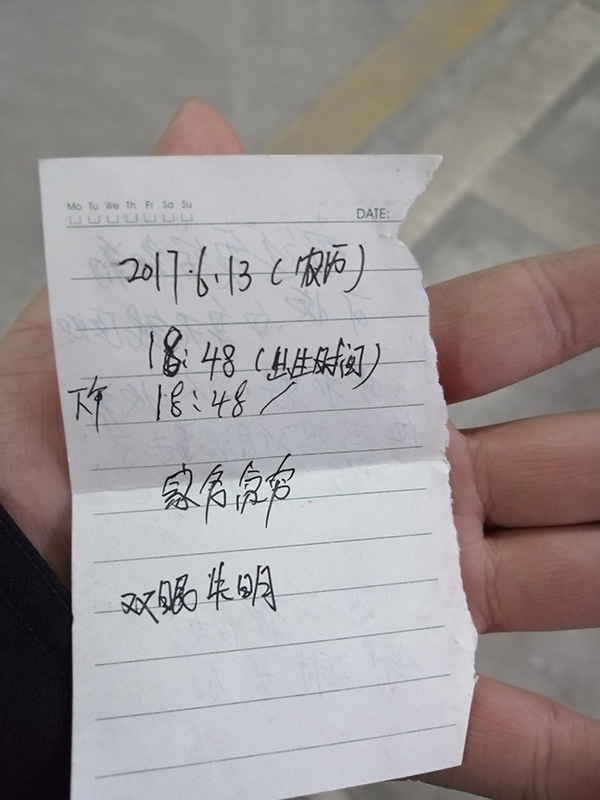 Mo Tu We Th Fr Sa Su
DATE:
2017.6.13(农历)
18:48(出生时间)
下午 18:48
家务贫穷
双眼失明